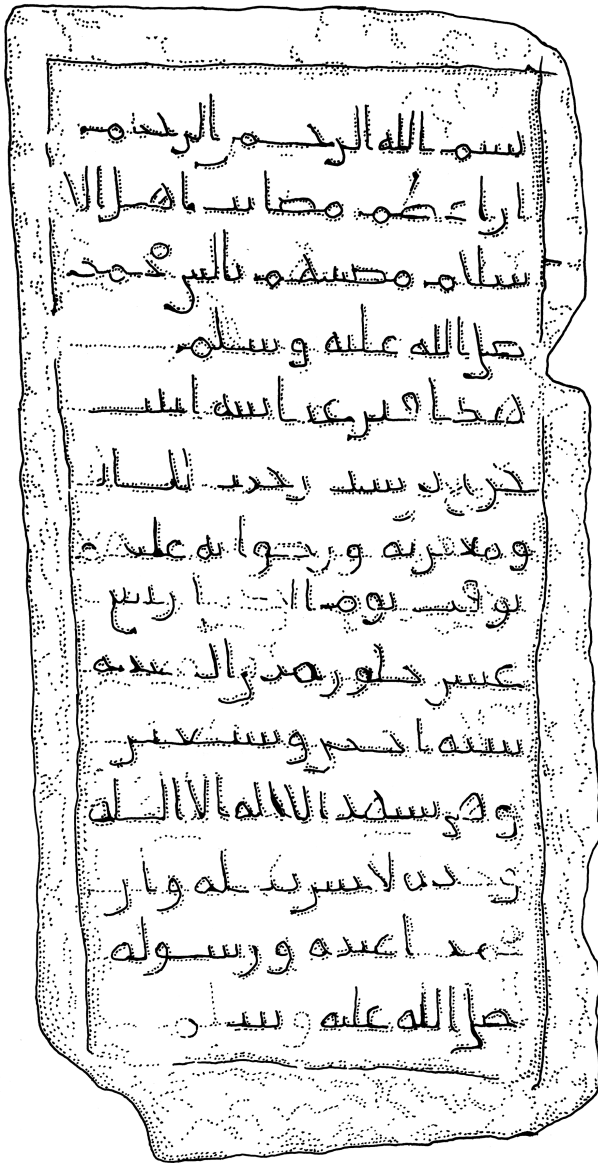 بسم الله الرحمن الرحيم
ان اعظم مصايب اهل الا
سلام مصيبتهم بالنبي محمد
صلى الله عليه وسلم
هذا قبر عباسه ابنت
جريج بن سند رحمت الله
ومغفرته ورضوانه عليها
توفيت يوم الاثنين لاربع
عشر خلون من ذي القعده
سنه احدى وسبعين
وهي تشهد الا اله الا الله
وحده لا شريك له وان
محمدا عبده ورسوله
صلى الله عليه وسلم